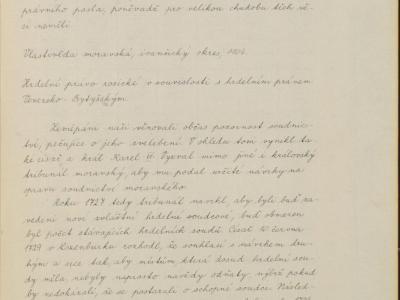 právního posla, poněvadž pro velikou chudobu těch vě-
ci navrátí.
Vlastivěda moravská, ivančický okres, 1904.
Hrdelní právo rosické v souvislosti s hrdelním právem
Veversko-Bytyšským.
Zeměpáni naši věnovali občas pozornost soudnic-
tví, pečujíce o jeho zvelebení. V ohledu tom vynikl ta-
ké císař a král Karel VI. Vyzval mimo jiné i královský
tribunál moravský, aby mu podal určité návrhy na
opravu soudnictví moravského.
Roku 1727 tedy tribunál navrhl, aby byli buď za-
vedeni noví zvláštní hrdelní soudcové, buď obmezen
byl počet stávajících hrdelních soudů. Císař 10. června
1729 v Laxenburku rozhodl, že souhlasí s návrhem dru-
hým a sice tak, aby místům, která dosud hrdelní sou-
dy měla, nebyly naprosto navždy odňaty, nýbrž pokud
by nedokázali, že se postarali o schopné soudce. Násled-